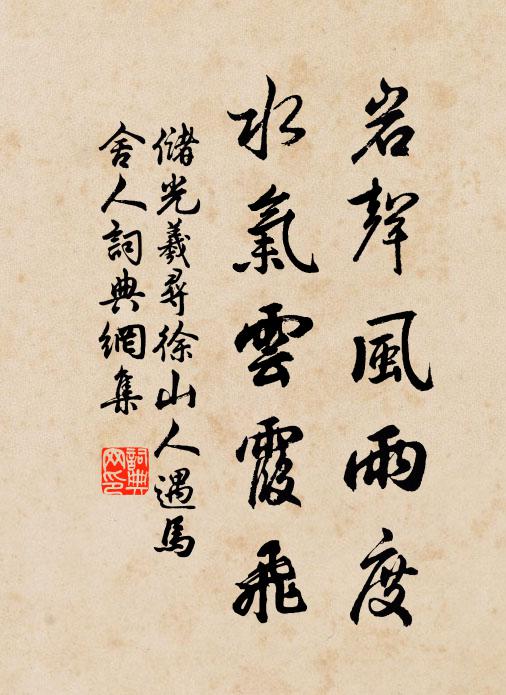 岩聲風雨度
水氣雲霞飛
儲光羲尋徐山人遇馬
舍人詞典網集
詞典网印